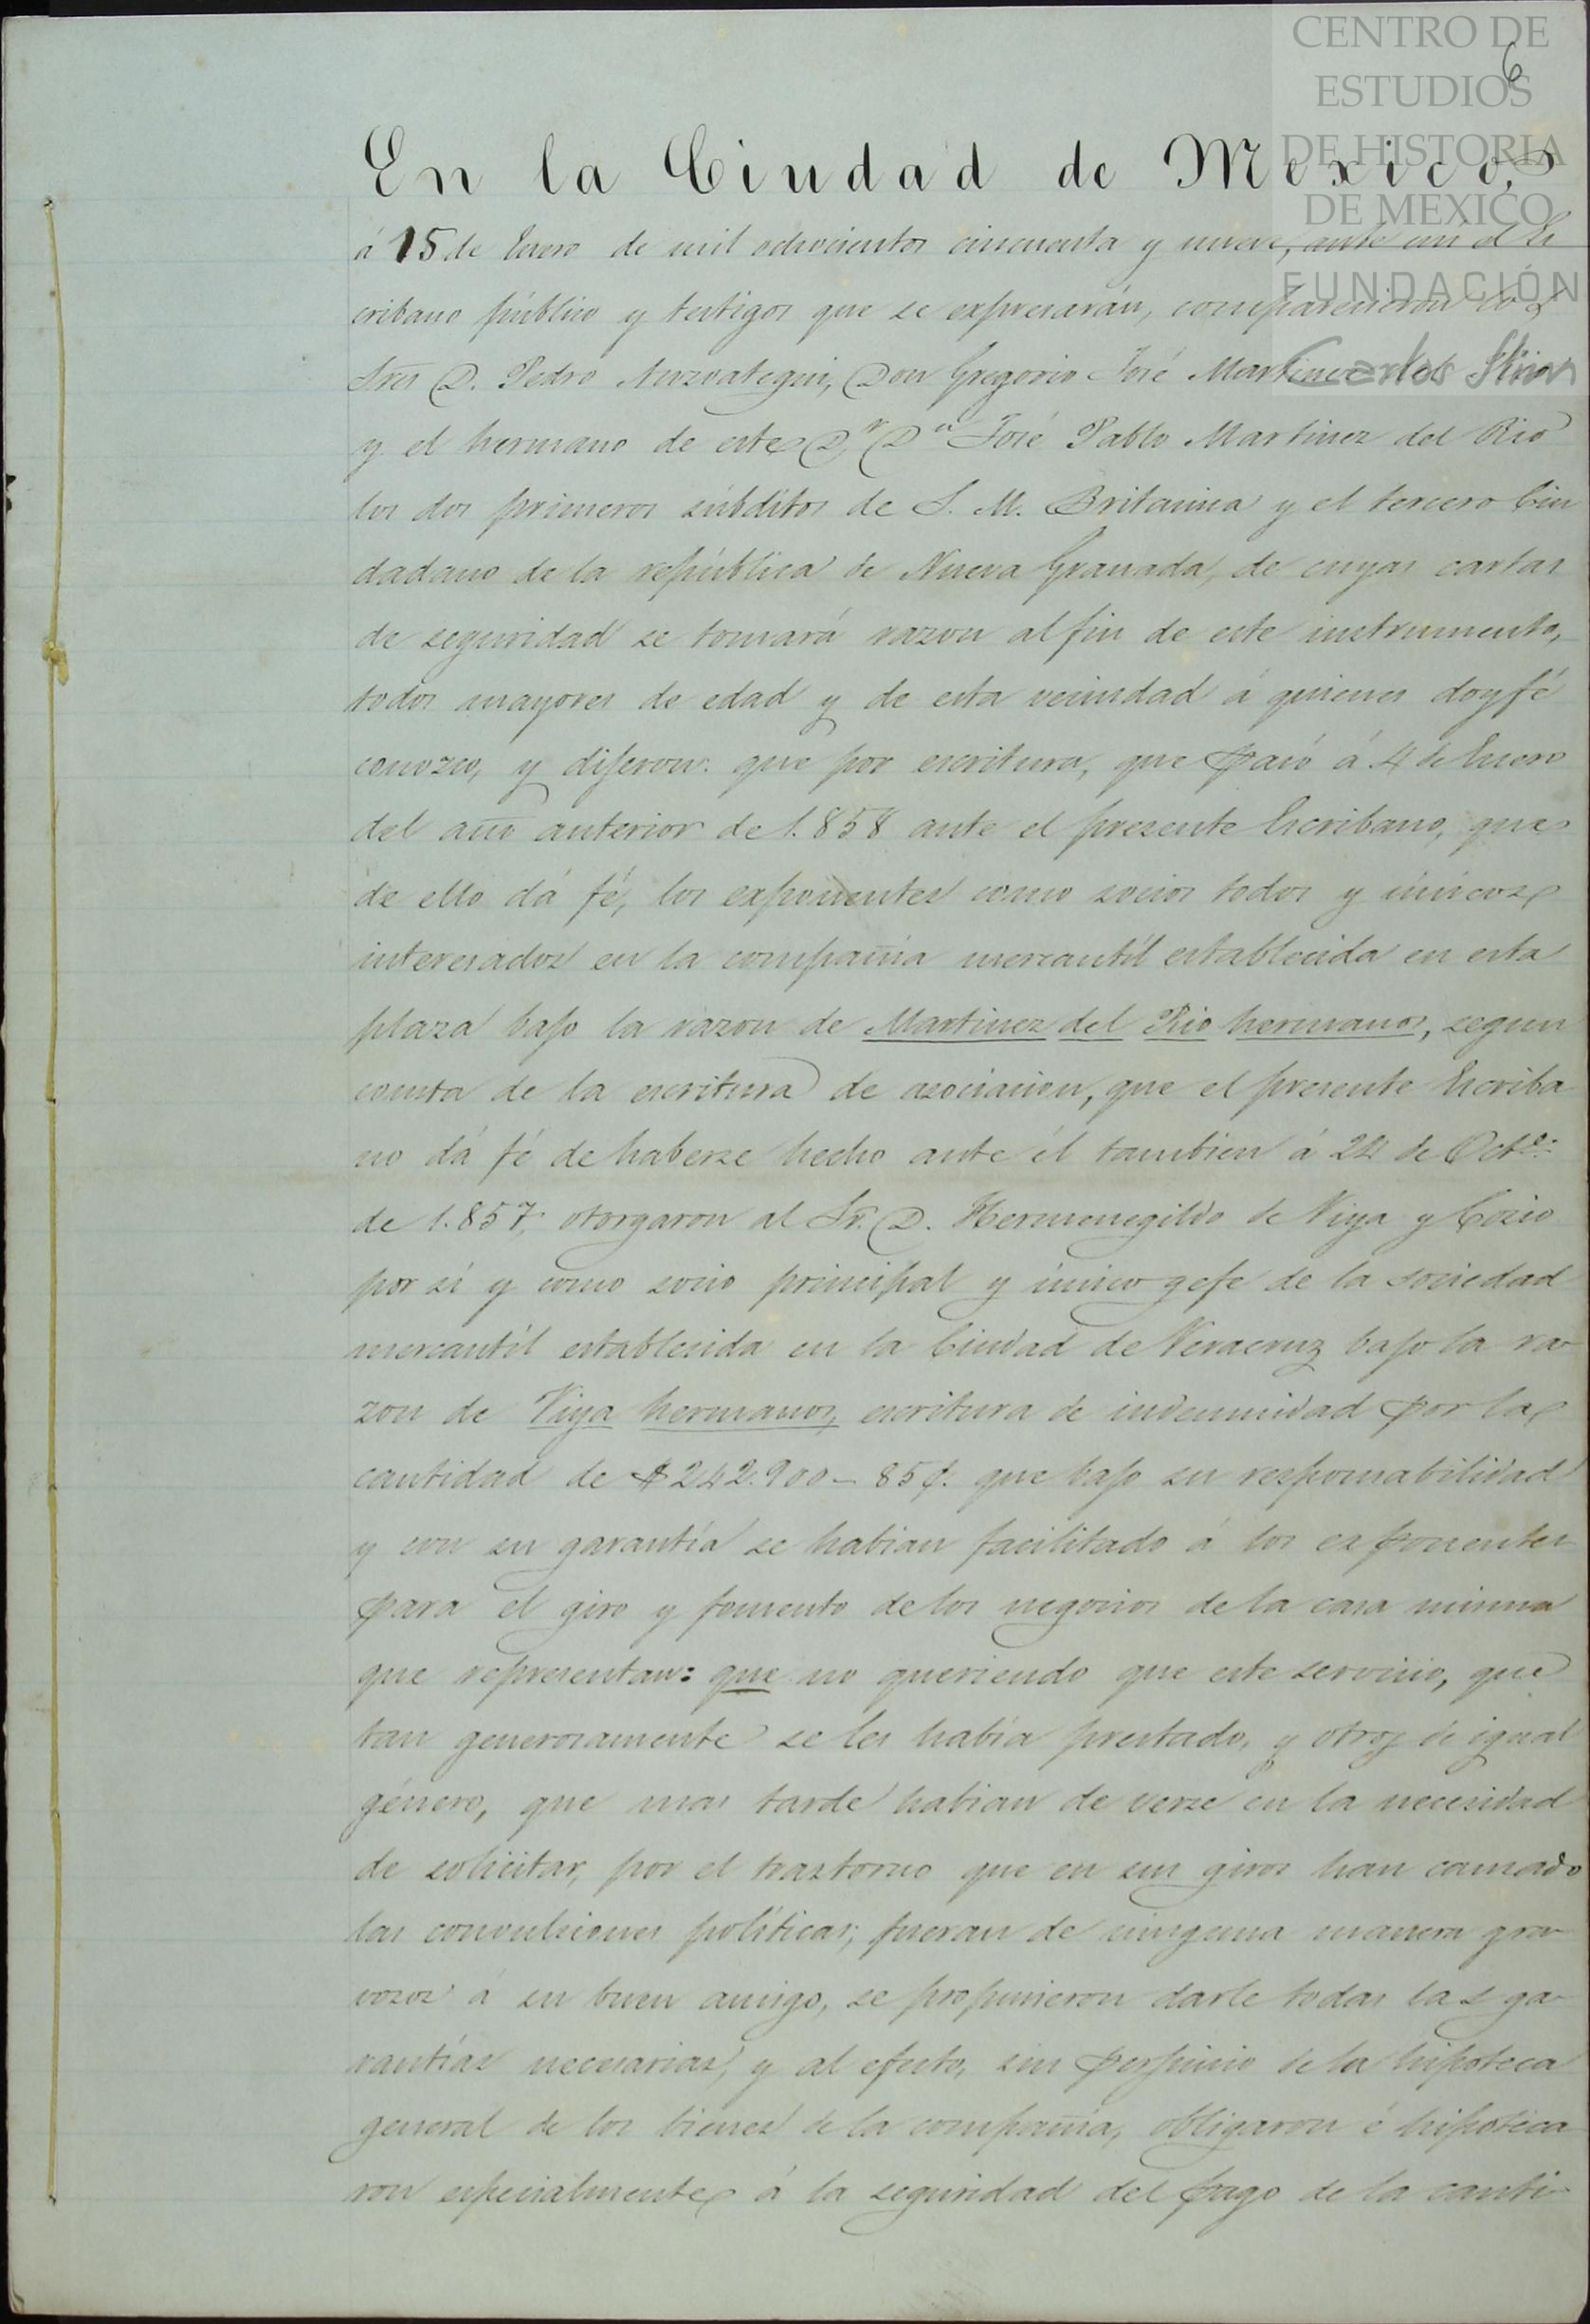 CENTRO DE
ESTUDIOS
DE HISTORIA
DE MEXICO
FUNDACIÓN
Carlos Slim
6
En la Ciudad de Mexico,
á 15 de Enero de mil ochocientos cincuenta y nueve, ante mi el Es
cribano público y testigos que se expresarán, comparecieron los
Sres D. Pedro Anzoategui, Don Gregorio José Martinez del Rio
y el hermano de este Dr Dn José Pablo Martinez del Rio
los dos primeros súbditos de S. M. Britanica y el tercero Ciu
dadano de la república de Nueva Granada, de cuyas cartas
de seguridad se tomará razon al fin de este instrumento,
todos mayores de edad y de esta vecindad á quienes doy fé
conozco, y dijeron: que por escritura, que pasó á 4 de Enero
del año anterior de 1.858 ante el presente Escribano, que
de ello dá fé, los exponentes como socios todos y únicos
interesados en la compañia mercantil establecida en esta
plaza bajo la razon de Martinez del Rio hermanos, segun
consta de la escritura de asociacion, que el presente Escriba
no dá fé de haberse hecho ante él tambien á 24 de Octe.
de 1.857, otorgaron al Sr. D. Hermenegildo de Viya y Cosio
por si y como socio principal y único gefe de la sociedad
mercantil establecida en la Ciudad de Veracruz bajo la ra
zon de Viya hermanos, escritura de indemnidad por la
cantidad de $242.900 – 85 ¢. que bajo su responsabilidad
y con su garantía se habian facilitado á los exponentes
para el giro y fomento de los negocios de la casa misma
que representan: que no queriendo que este servicio, que
tan generosamente se les habia prestado, y otros de igual
género, que mas tarde habian de verse en la necesidad
de solicitar, por el trastorno que en sus giros han causado
las convulsiones políticas; fueran de ninguna manera gra
vosos á su buen amigo, se propusieron darle todas las ga
rantías necesarias, y al efecto, sin perjuicio de la hipoteca
general de los bienes de la compañia, obligaron é hipoteca
ron especialmente á la seguridad del pago de la canti